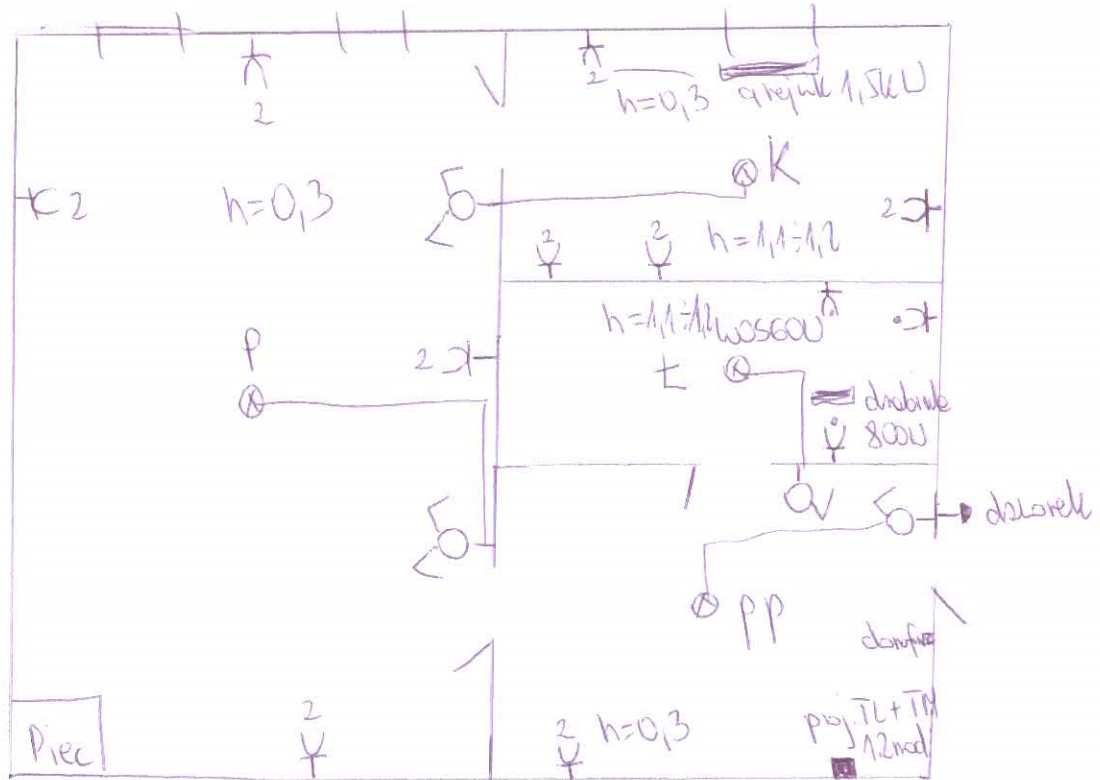 2
2
h=0,3
grzejnik 1,5kW
K
2
h=0,3
2
2
2
h=1,1÷1,2
h=1,1÷1,2
P
2
Ł
drabinka
800W
dzwonek
PP
domofon
2
2
h=0,3
Piec
TL+TM
12mod